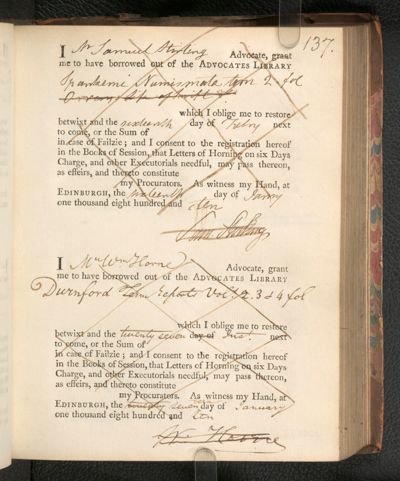 137.
I Mr Samuel Stirling Advocate, grant
me to have borrowed out of the ADVOCATES LIBRARY
Spanhemi Numismata tom 2. fol
which I oblige me to restore
betwixt and the sixteenth day of Febry next
to come, or the Sum of
in case of Failzie; and I consent to the registration hereof
in the Books of Session, that Letters of Horning on six Days
Charge, and other Executorials needful, may pass thereon,
as effeirs, and thereto constitute
my Procurators. As witness my Hand, at
EDINBURGH, the sixteenth day of Janry
one thousand eight hundred and ten
Saml. Stirling
I Mr Wm Horne Advocate, grant
me to have borrowed out of the ADVOCATES LIBRARY
Durnford Term Reports Vol 2. 3 & 4 fol
which I oblige me to restore
betwixt and the twenty seven day of Inst. next
to come, or the Sum of
in case of Failzie; and I consent to the registration hereof
in the Books of Session, that Letters of Horning on six Days
Charge, and other Executorials needful, may pass thereon,
as effeirs, and thereto constitute
my Procurators. As witness my Hand, at
EDINBURGH, the twenty seven day of January
one thousand eight hundred and ten
Wm Horne